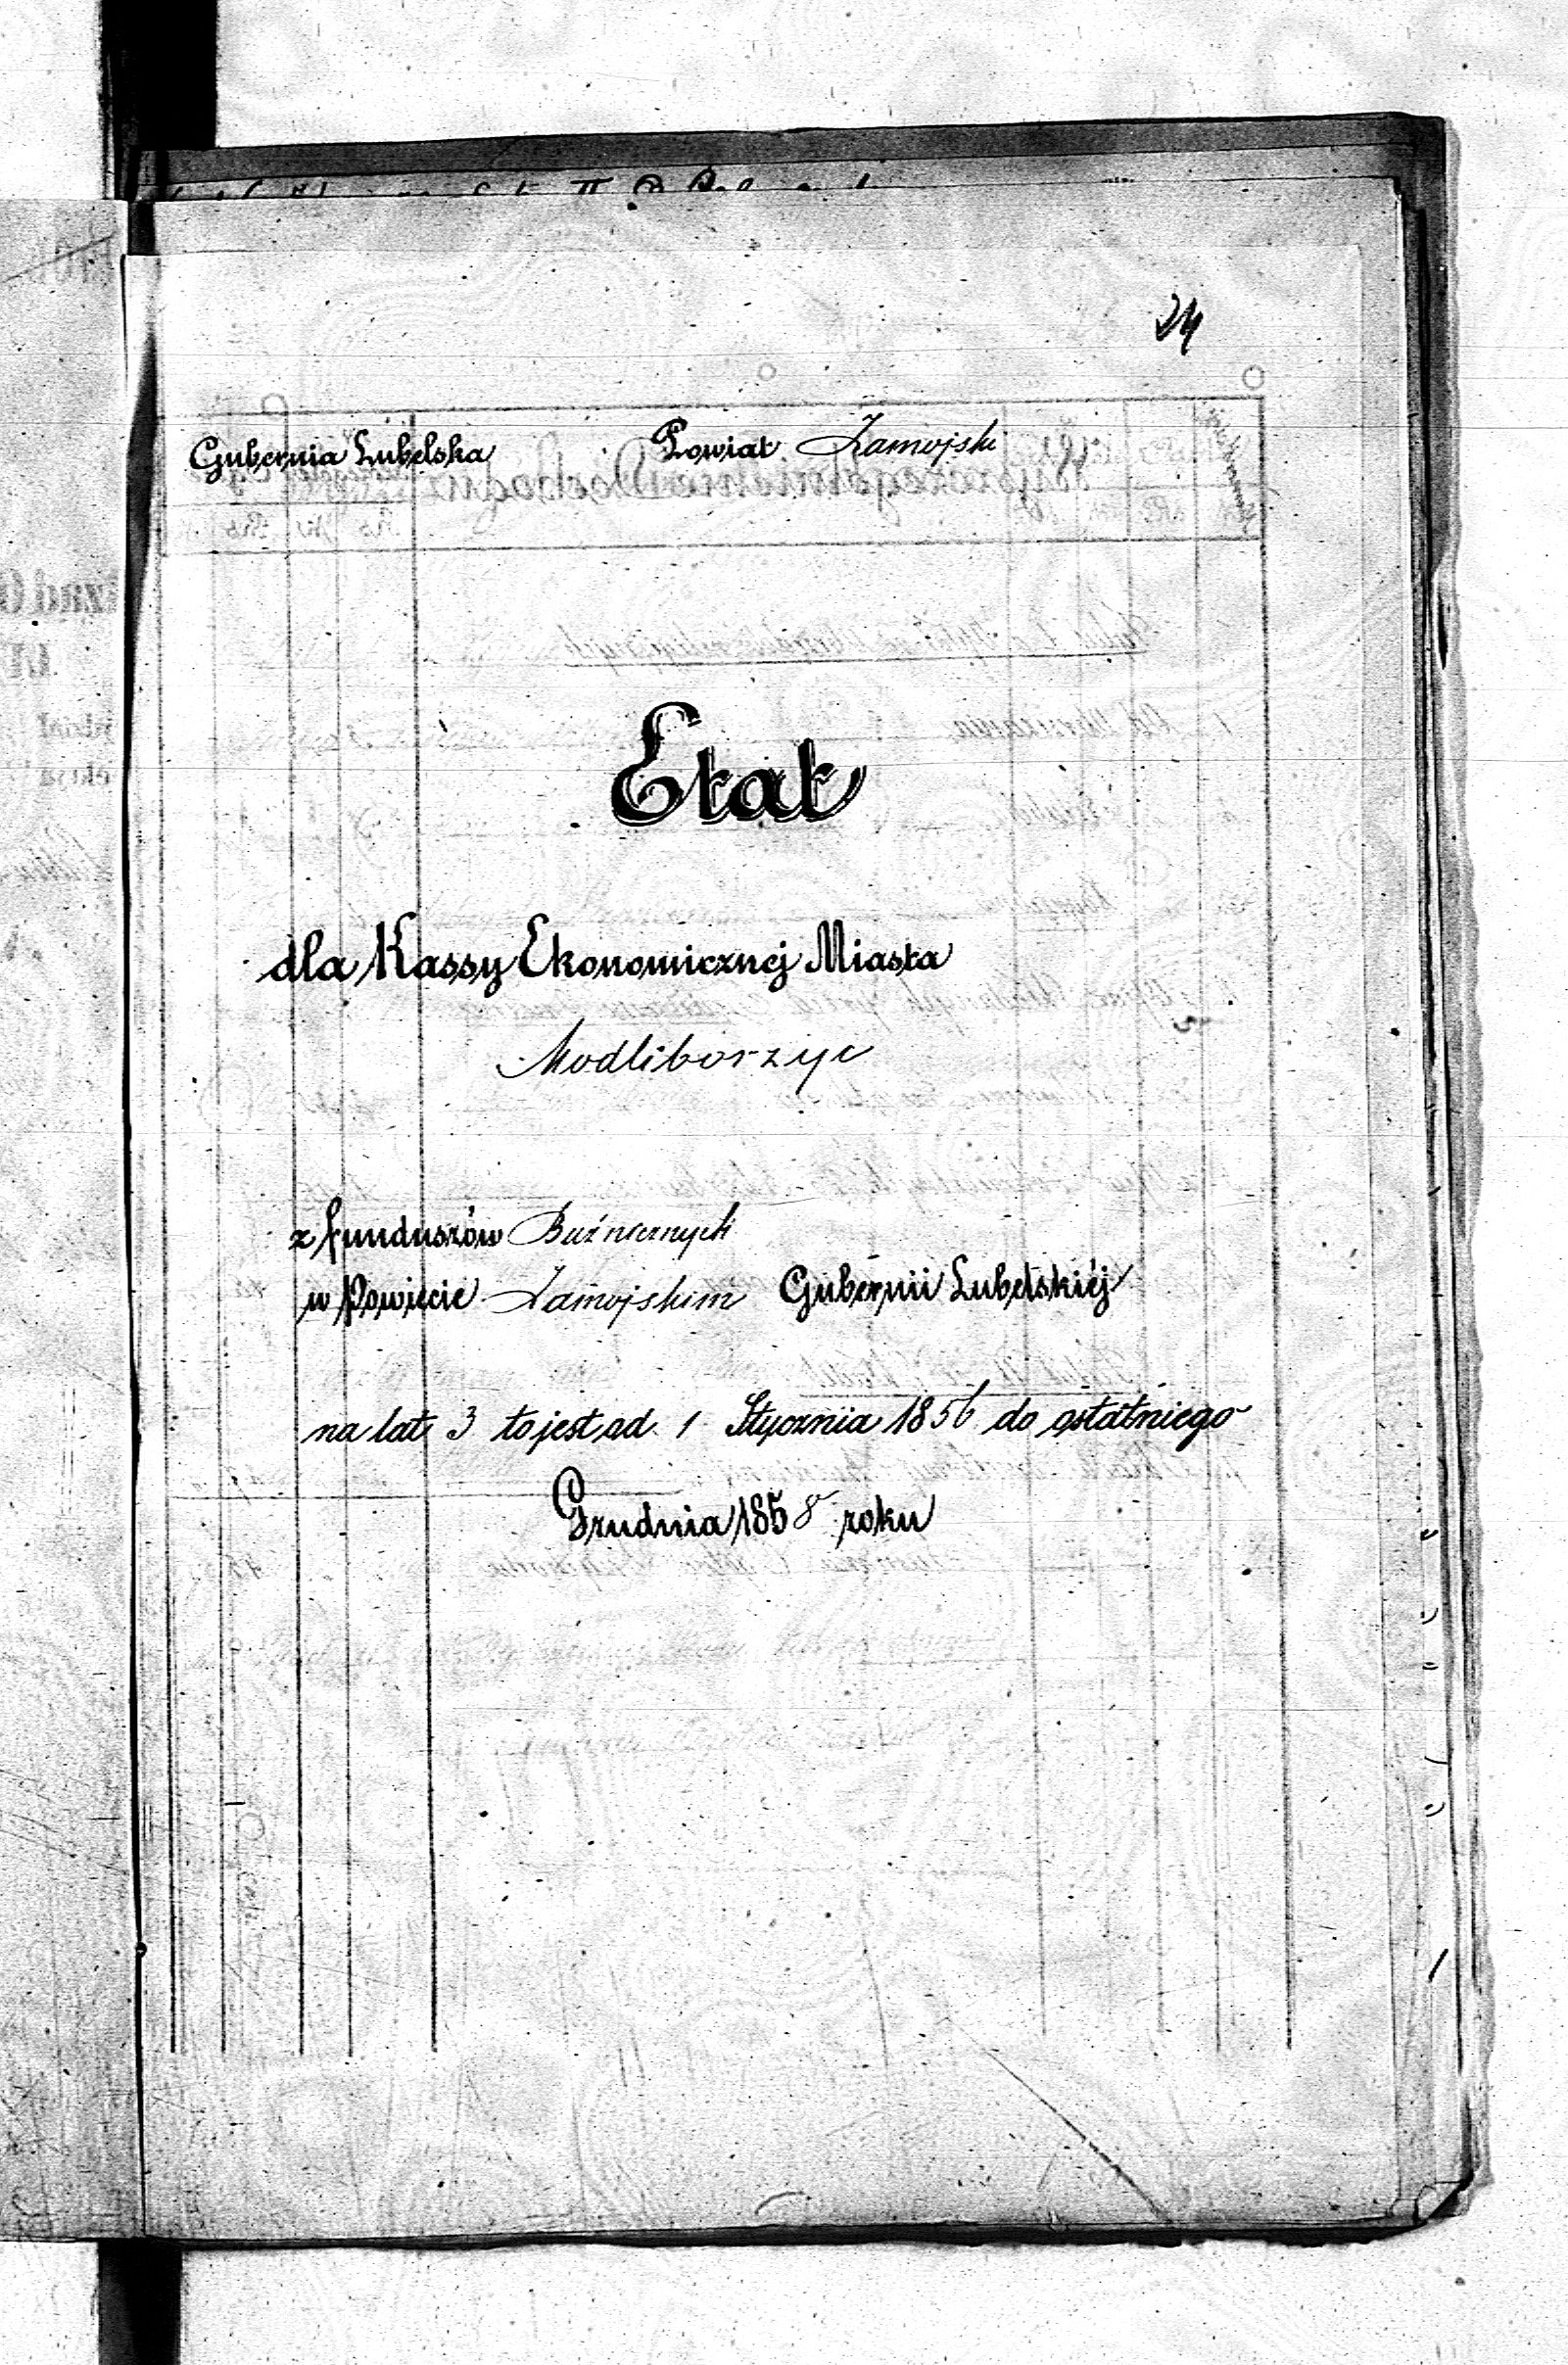 24
Gubernia Lubelska Powiat Zamojski
Etat
dla Kassy Ekonomicznej Miasta
Modliborzyc
z funduszów Bużnicznych
w Powiecie Zamojskim Gubernii Lubelskiéj
na lat 3 to jest od 1 Stycznia 1856 do ostatniego
Grudnia 1858 roku